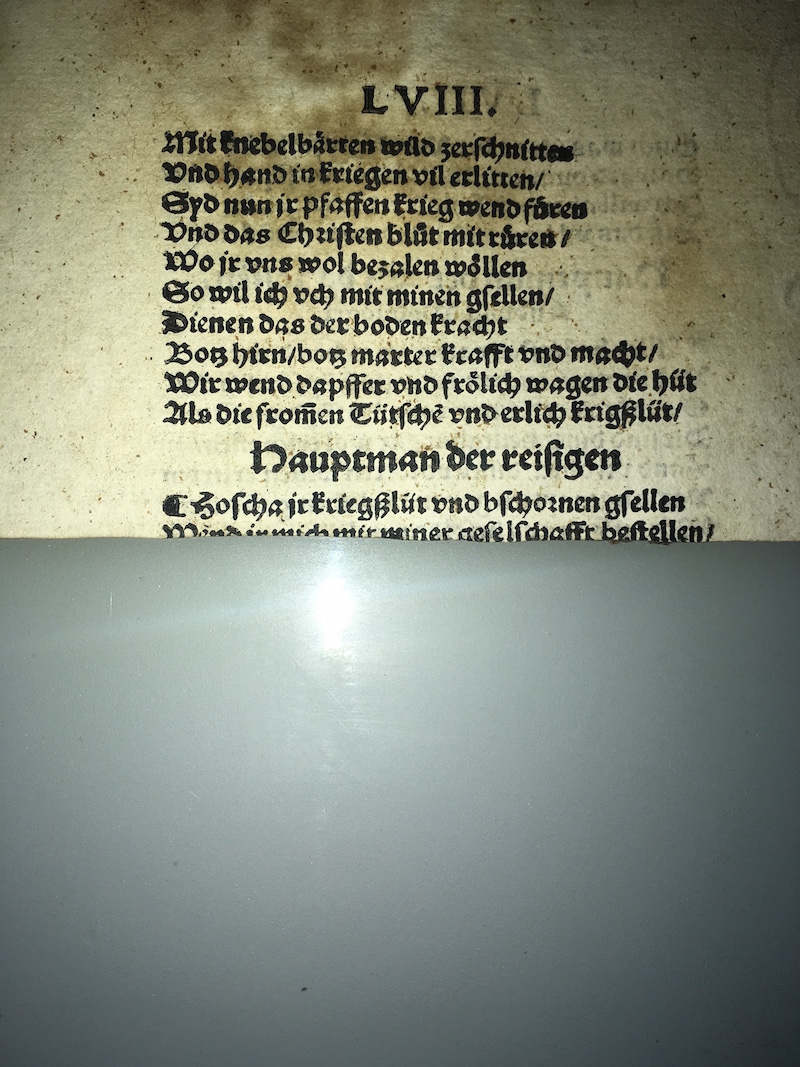 LVIII.
Mit knebelbärten wild zerschnitten
Vnd hand in kriegen vil erlitten/
Syd nun jr pfaffen krieg wend fůren
Vnd das Christen blůt mit růren/
Wo jr vns wol bezalen wöllen
So wil ich vch mit minen gsellen/
Dienen das der boden kracht
Botz hirn/botz marter krafft vnd macht/
Wir wend dapffer vnd frölich wagen die hüt
Als die from̃en Tütschẽ vnd erlich krigßlüt/
Hauptman der reisigen
¶ Hoscha jr kriegßlüt vnd bschornen gsellen
Wend jr mich mit miner geselschafft bestellen/